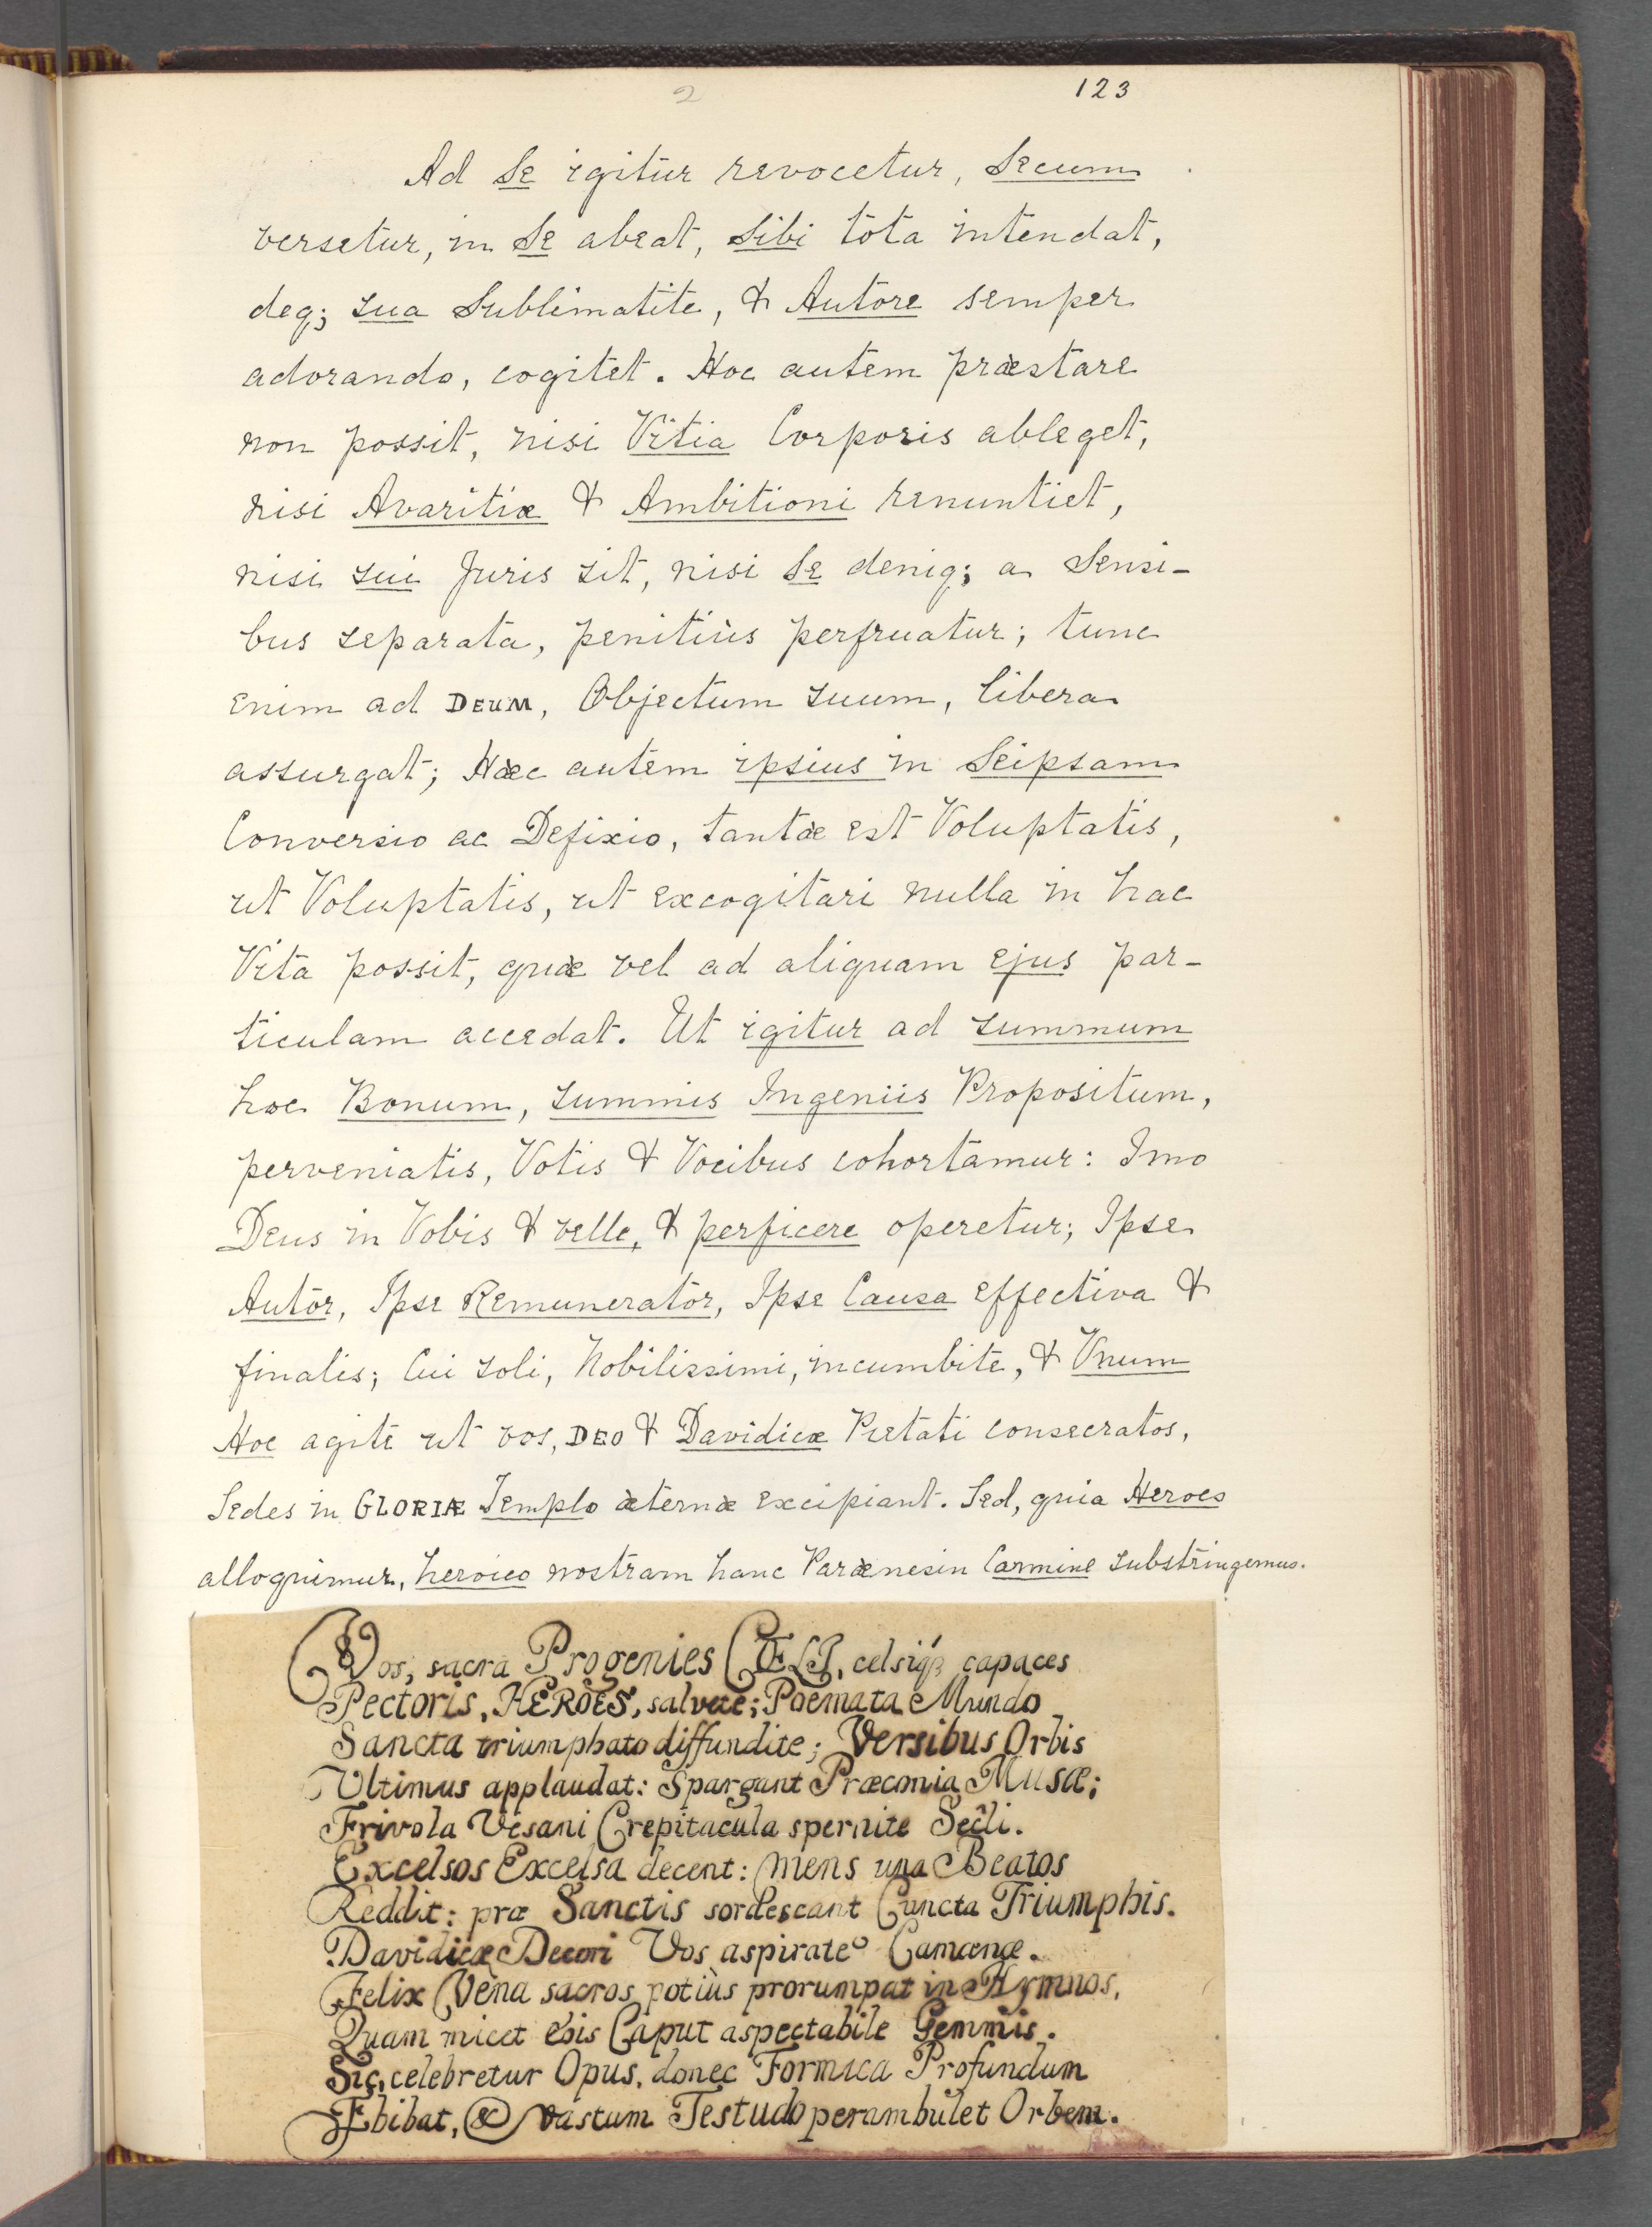 2
123
Ad Se igitur revocetur, Secum
versetur, in Se abeat, Sibi tota intendat,
deq; sua Sublimatite, & Autore semper
adorando, cogitet. Hoc autem præstare
non possit, nisi Vitia Corporis ableget,
nisi Avaritiæ & Ambitioni renuntiet,
nisi sui Juris sit, nisi Se deniq; a Sensi-
bus separata, penitiùs perfruatur; tunc
enim ad DEUM, Objectum suum, libera
assurgat; Hæc autem ipsius in Seipsam
Conversio ac Defixio, tantæ est Voluptatis,
ut Voluptatis, ut excogitari nulla in hac
Vita possit, quæ vel ad aliquam ejus par-
ticulam accedat. Ut igitur ad summum
hoc Bonum, summis Ingeniis Propositum,
perveniatis, Votis & Vocibus cohortamur: Imo
Deus in Vobis & velle, & perficere operetur; Ipse
Autor, Ipse Remunerator, Ipse Causa effectiva &
finalis; Cui soli, Nobilissimi, incumbite, & Vnum
Hoc agite ut vos, DEO & Davidicæ Pietati consecratos,
Sedes in GLORIÆ Templo æternæ excipiant. Sed, quia Heroes
alloquimur, heroico nostram hanc Parænesin Carmine substringemus.
Vos, sacra Progenies CŒLI, celsiq; capaces
Pectoris, HEROES, salvete; Poemata Mundo
Sancta triumphato diffundite; Versibus Orbis
Ultimus applaudat: Spargant Præconia Musæ;
Frivola Vesani Crepitacula spernite Secli.
Excelsos Excelsa decent: Mens una Beatos
Reddit: præ Sanctis sordescant Cuncta Triumphis.
Davidicæ Decori Vos aspirate Camœnæ.
Felix Vena sacros potiùs prorumpat in Hymnos,
Quam micet Eois Caput aspectabile Gemmis.
Sic, celebretur Opus, donec Formica Profundum
Ebibat, & vastum Testudo perambulet Orbem.